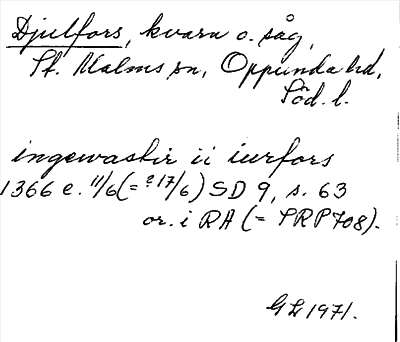 Djulfors, kvarn o. såg,
St. Malms sn, Oppunda hd,
Söd. l.
ingewastir ii iurfors
1366 e. 11/6 (= ? 17/6) SD 9, s. 63
or. i RA (= PRP 708).
GL 1971.